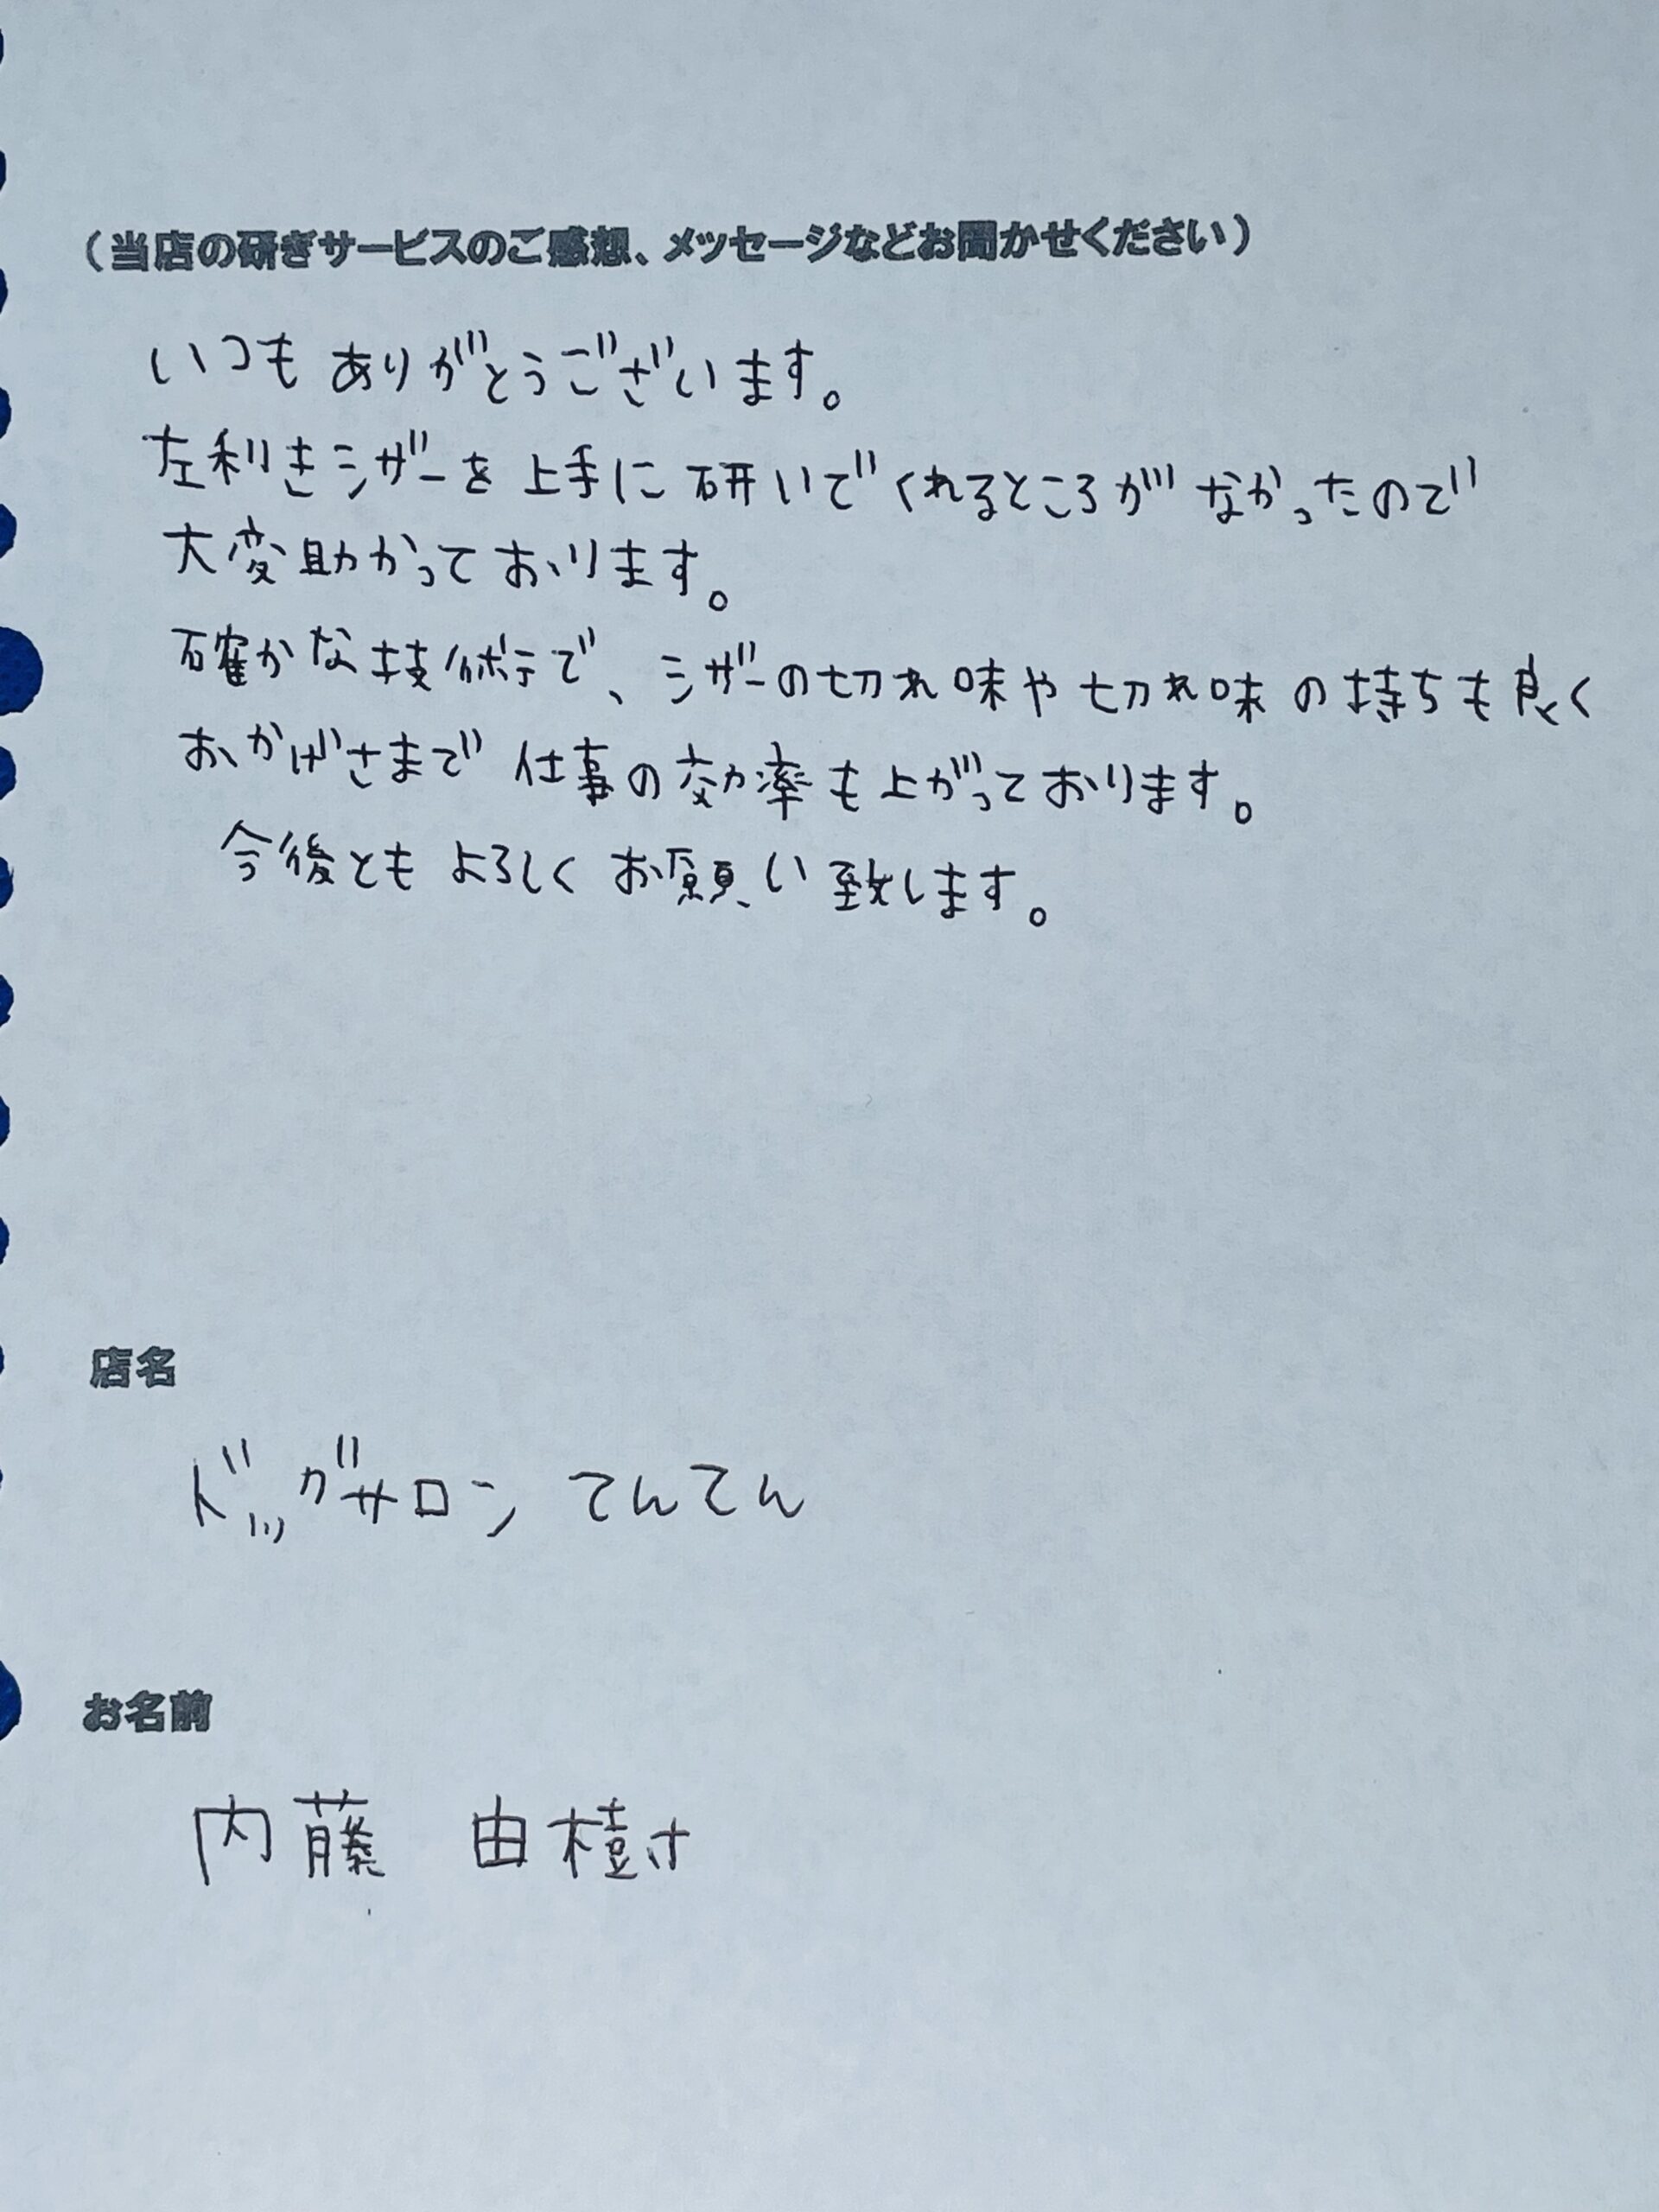 （当店の研ぎサービスのご感想、メッセージなどお聞かせください）
いつもありがとうございます。
左利きシザーを上手に研いでくれるところがなかったので
大変助かっております。
確かな技術で、シザーの切れ味や切れ味の持ちも良く
おかげさまで仕事の効率も上がっております。
今後ともよろしくお願い致します。
店名
ドッグサロン てんてん
お名前
内藤 由樹